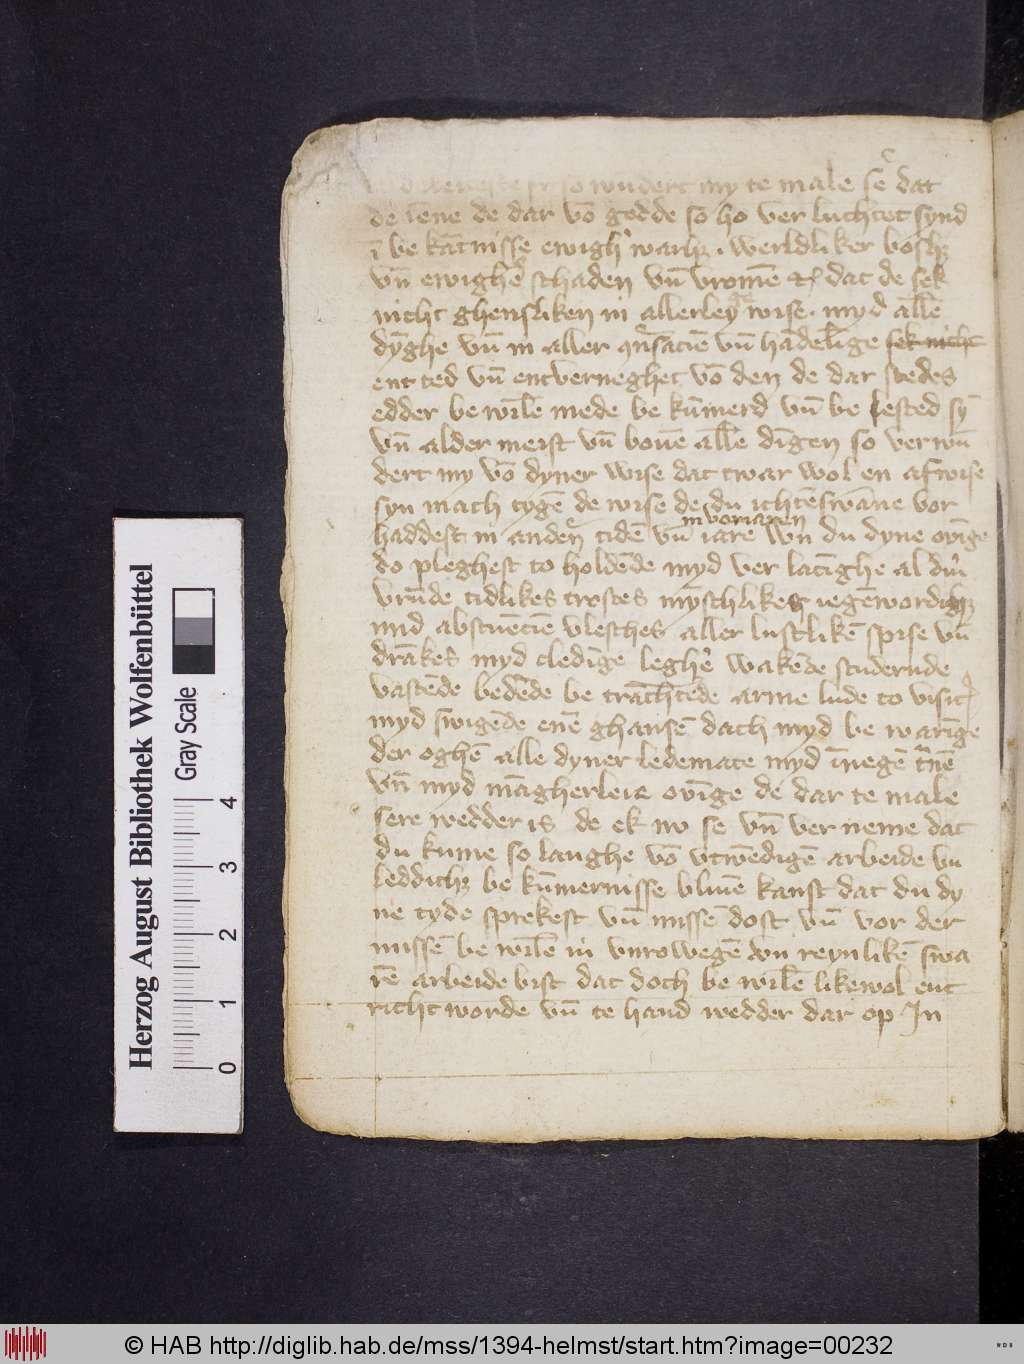 so wndert my te male se dat
de iene de dar vō godde so ho ver luchtet synd
ī be kātnisse ewigh' warhꝫ . werldliker boshꝫ
vn̄ ewighē schaden vn̄ vromē dat de sek
nicht ghensliken in allerleye wise . myd allē
dȳghe vn̄ in aller ꝯūsaciē vn̄ hādelīge sek nicht
ent ted vn̄ entverneghet vō den de dar stedes
edder be wilē mede be kūmerd vn̄ be lested sȳ
vn̄ alder meist vn̄ bouē allē dīgen so verwū
dert my vō dyner wise dat twar wol en afwise
syn mach tygē de wise de du ichteswāne vor
haddest in anderē tidē vn̄ iare wn̄ du dyne ouīge
in voriaren
do pleghest to holdēde myd ver latīghe al dīn'
vrūde tidlikes trostes myschlikes iegēwordichꝫ
mid abstinēciē vlesches aller lustlikē spise vn̄
drākes myd cledīge leghe' wakēde studernde
vastēde bedēde be trachtēde arme lude to visit
myd swigēde enē ghansē dach myd be warīge
der oghē alle dyner ledemate myd īnegē t'nē
vn̄ myd māgherleie ouīge de dar te male
sere wedder is de ek nv se vn̄ ver neme dat
du kume so langhe vō vtwēdigē arbeide vn̄
leddichꝫ be kūmernisse bliuē kanst dat du dy
ne tyde sprekest vn̄ missē dost vn̄ vor der
missē be wilē in vnrowegē vn reynlikē swa
rē arbeide bist dat doch be wilē likewol ent
richt worde vn̄ te hand wedder dar op In
Herzog August Bibliothek Wolfenbüttel
Gray Scale
0 1 2 3 4
© HAB http://diglib.hab.de/mss/1394-helmst/start.htm?image=00232